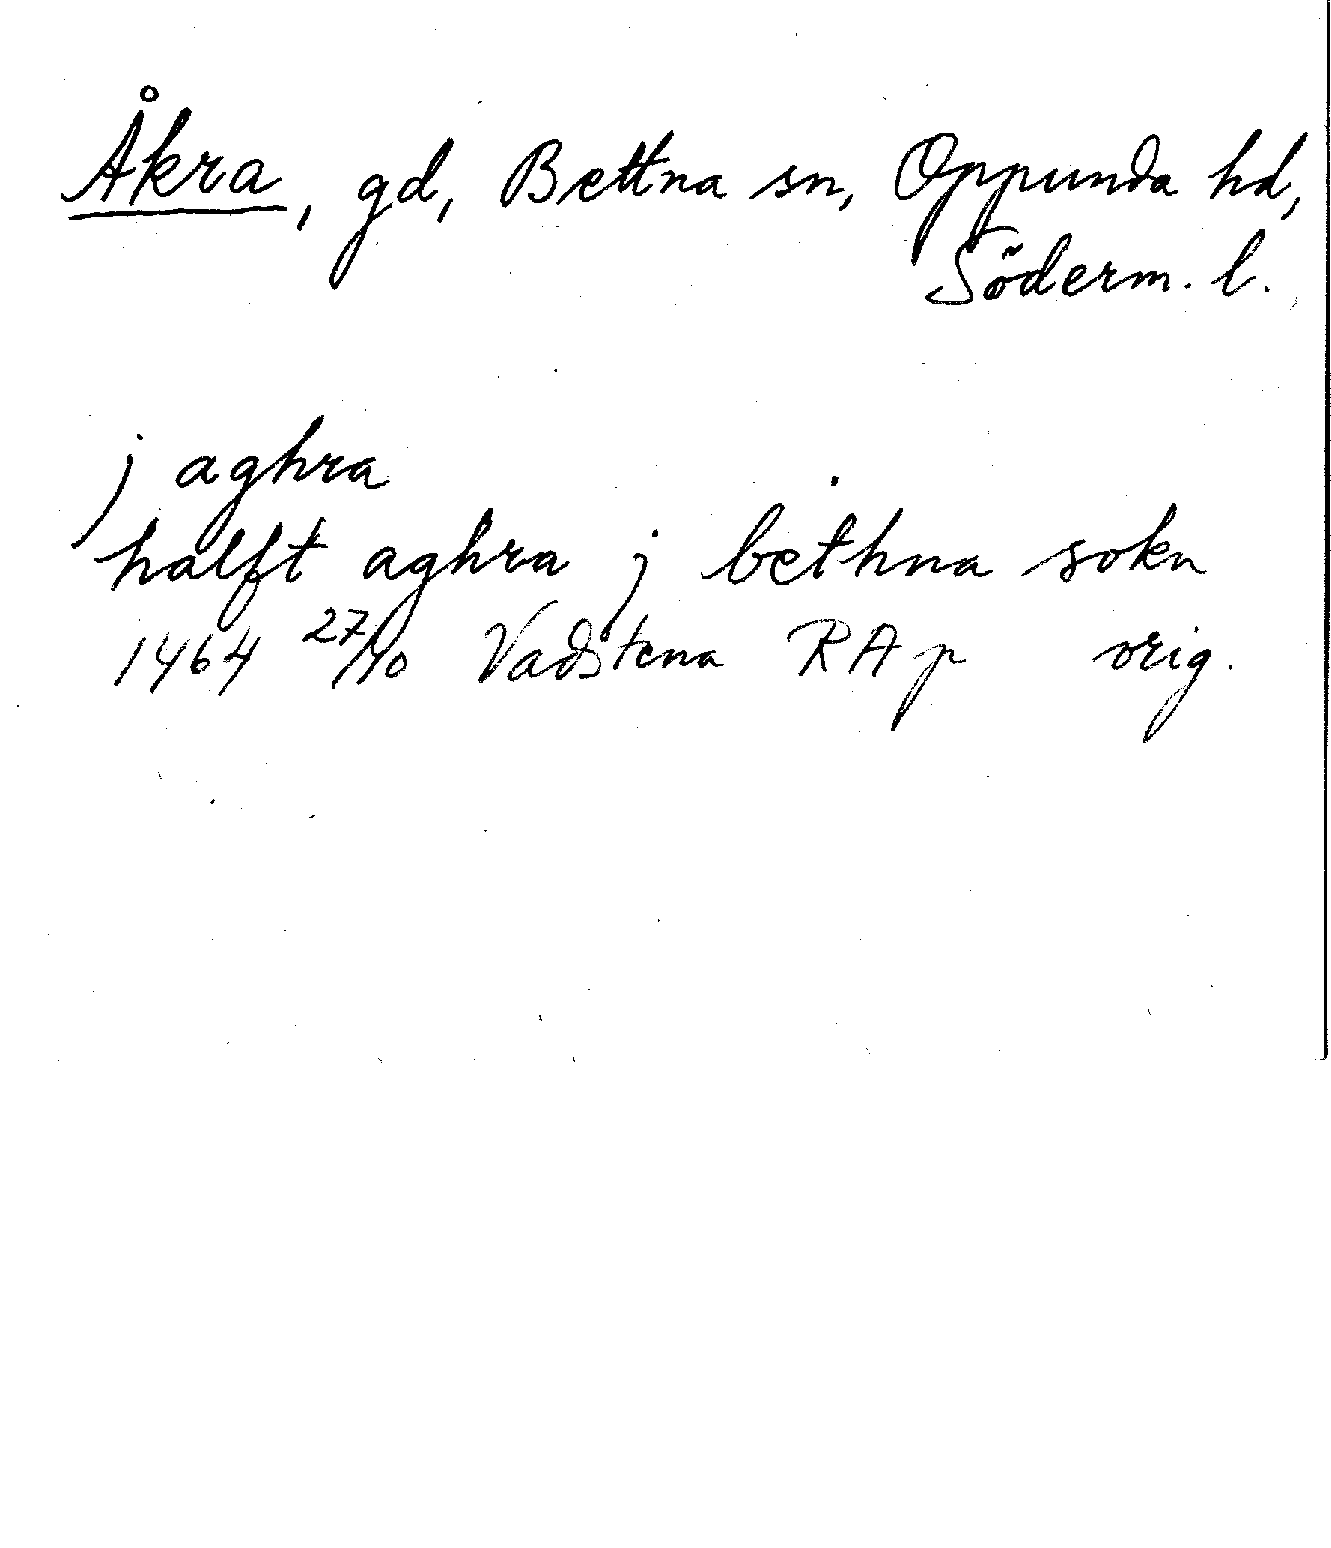 Åkra, gd, Bettna sn, Oppunda hd,
Söderm. l.
j aghra
halfft aghra j bethna sokn
1464 27/10 Vadstena RAp orig.